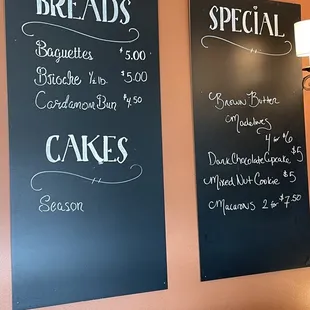 BREADS
Baguettes $5.00
Brioche 1/2 lb. $5.00
Cardamom Bun $4.50
CAKES
Season
SPECIAL
Brown Butter
Madelines
4 for $6
Dark Chocolate Cupcake $5
Mixed Nut Cookie $5
Macarons 2 for $7.50